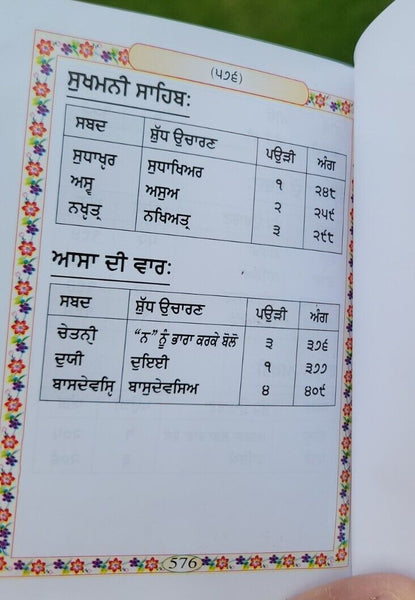 (੫੭੬)
ਸੁਖਮਨੀ ਸਾਹਿਬ:
ਸਬਦ ਸ਼ੁੱਧ ਉਚਾਰਣ ਪਉੜੀ ਅੰਗ
ਸੁਧਾਖੵਰ ਸੁਧਾਖਿਅਰ ੧ ੨੪੮
ਅਸ੍ਵ ਅਸੁਅ ੨ ੨੫੯
ਨਖੵਤ੍ਰ ਨਖਿਅਤ੍ਰ ੩ ੨੯੮
ਆਸਾ ਦੀ ਵਾਰ:
ਸਬਦ ਸ਼ੁੱਧ ਉਚਾਰਣ ਪਉੜੀ ਅੰਗ
ਚੇਤਨੑੀ “ਨ” ਨੂੰ ਭਾਰਾ ਕਰਕੇ ਬੋਲੋ ੩ ੩੭੬
ਦੁਯੀ ਦੁਇਈ ੧ ੩੭੭
ਬਾਸਦੇਵਸੵਿ ਬਾਸੁਦੇਵਸਿਅ ੪ ੪੦੯
576